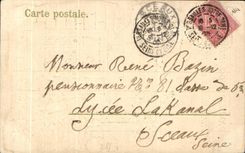 Carte postale.
Monsieur René Bazin
pensionnaire 81 classe de
Lycée Lakanal
Sceaux
Seine